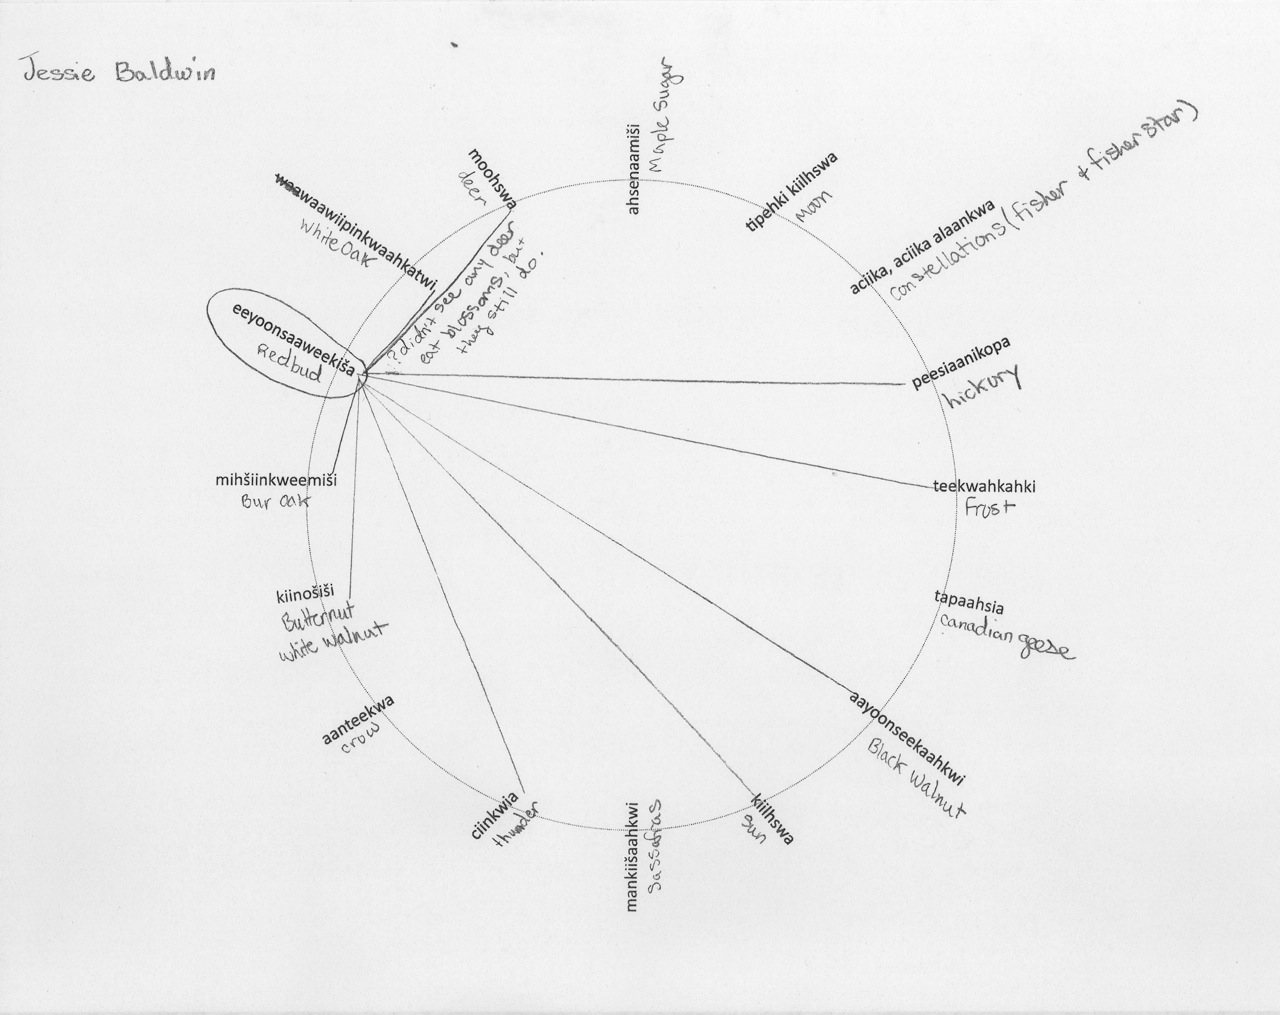 Jessie Baldwin
ahsenaamiši
Maple Sugar
tipehki kiilhswa
Moon
aciika, aciika alaankwa
Constellations (fisher + fisher star)
peesiaanikopa
hickory
teekwahkahki
Frost
tapaahsia
Canadian geese
aayoonseekaahkwi
Black Walnut
kiilhswa
Sun
mankiišaahkwi
Sassafras
ciinkwia
thunder
aanteekwa
crow
kiinošiši
Butternut
white walnut
mihšiinkweemiši
Bur oak
eeyoonsaaweekiša
Redbud
waawaawiipinkwaahkatwi
White Oak
moohswa
deer
? didn't see any deer
eat blossoms, but
they still do.